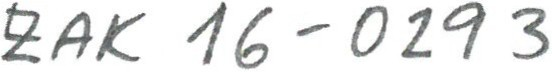 ZAK 16-0293